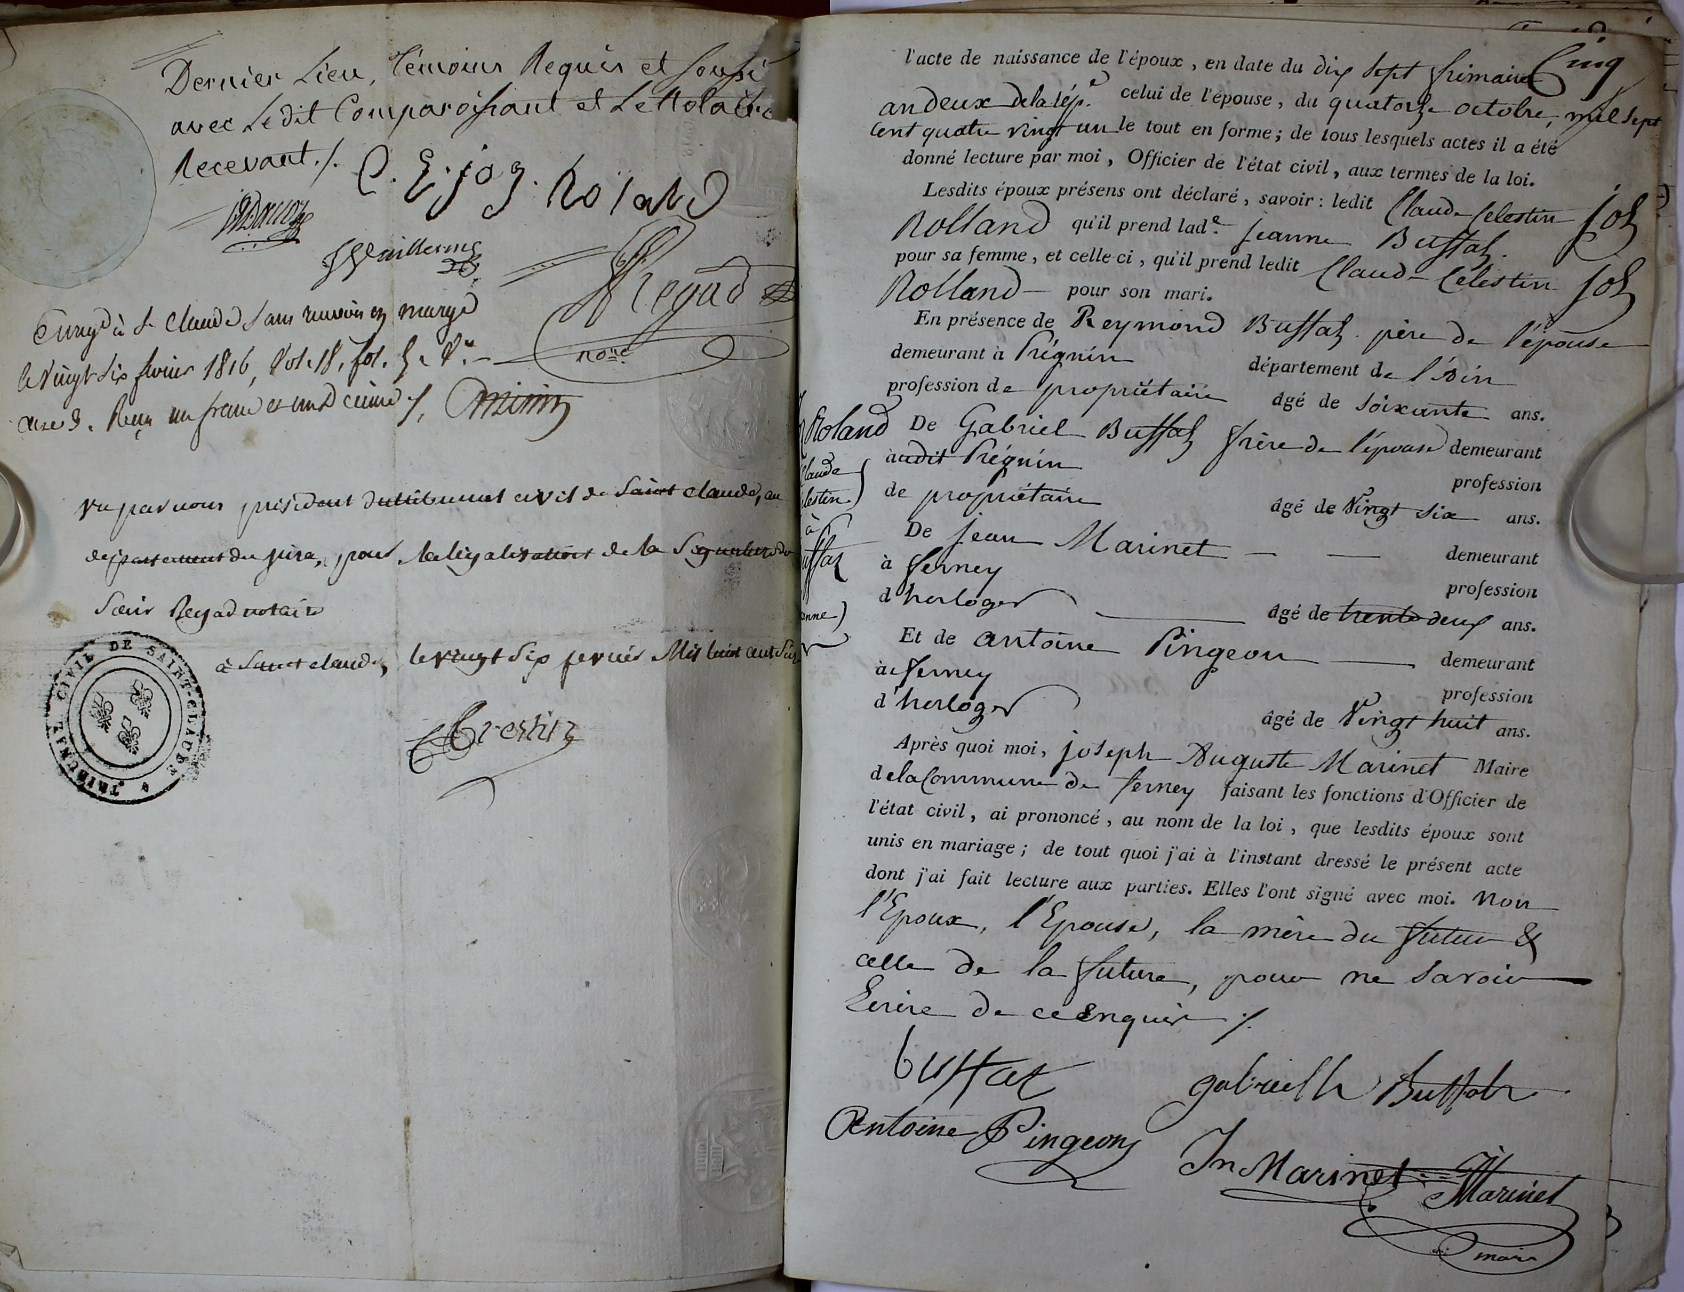 Dernier Lieu, témoins Requis et
avec Ledit Comparoissant et Le Notaire
Recevant ./.
C. E. joz. Roland
Regad
nore
à St Claude sans renvoi en marge
le vingt six fevrier 1816, vol. 18, fol.
Reçu un franc et un décime
vu par nous président du tribunal civil de Saint Claude, au
département du jura, pour la légalisation de la Signature du
Sieur Regad notaire
à Saint claude, le vingt six fevrier Mil huit cent Seize
TRIBUNAL CIVIL DE SAINT-CLAUDE
Cinq
l'acte de naissance de l'époux, en date du dix sept frimaire
an deux de la rép.e celui de l'épouse, du quatorze octobre, mil sept
cent quatre vingt un le tout en forme; de tous lesquels actes il a été
donné lecture par moi, Officier de l'état civil, aux termes de la loi.
Lesdits époux présens ont déclaré, savoir: ledit Claude Celestin Joh
Rolland qu'il prend lad.e jeanne Buffaz.
pour sa femme, et celle-ci, qu'il prend ledit Claude Célestin Joh
Rolland pour son mari.
En présence de Reymond Buffaz père de l'épouse
demeurant à Prégnin département de l'Ain
profession de propriétaire âgé de soixante ans.
Roland
De Gabriel Buffaz frère de l'épouse demeurant
audit Prégnin profession
de propriétaire âgé de Vingt six ans.
De jean Marinet demeurant
à ferney profession
d'horloger âgé de trente deux ans.
Et de antoine Pingeon demeurant
à ferney profession
d'horloger âgé de Vingt huit ans.
Après quoi moi, joseph Auguste Marinet Maire
de la Commune de ferney faisant les fonctions d'Officier de
l'état civil, ai prononcé, au nom de la loi, que lesdits époux sont
unis en mariage; de tout quoi j'ai à l'instant dressé le présent acte
dont j'ai fait lecture aux parties. Elles l'ont signé avec moi. Non
l'Epoux, l'Epouse, la mère du futur &
celle de la future, pour ne savoir
Ecrire de ce Enquis ./.
buffat gabriell Buffatz
Antoine Pingeon Jn Marinet Marinet
maire